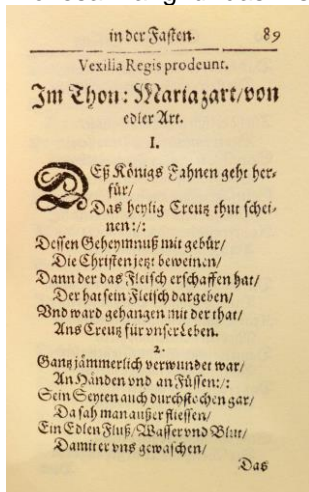 in der Fasten. 89
Vexilla Regis prodeunt.
Im Thon: Maria zart/von
edler Art.
I.
DEß Königs Fahnen geht her-
für/
Das heylig Creutz thut schei-
nen:/:
Dessen Geheymnuß mit gebür/
Die Christen jetzt beweinen/
Dann der das Fleisch erschaffen hat/
Der hat sein Fleisch dargeben/
Vnd ward gehangen mit der that/
Ans Creutz für vnser Leben.
2.
Gantz jämmerlich verwundet war/
An Händen vnd an Füssen:/:
Sein Seyten auch durchstochen gar/
Da sah man außer fliessen/
Ein Edlen Fluß/Wasser vnd Blut/
Damit er vns gewaschen/
Das